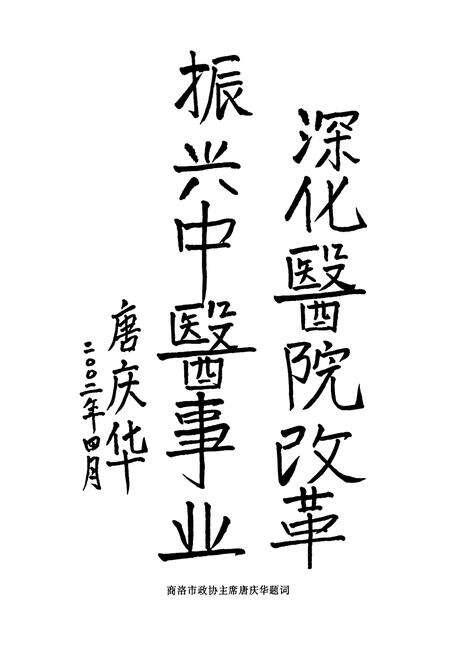 深化醫院改革
振兴中醫事业
唐庆华
二〇〇二年四月
商洛市政协主席唐庆华题词